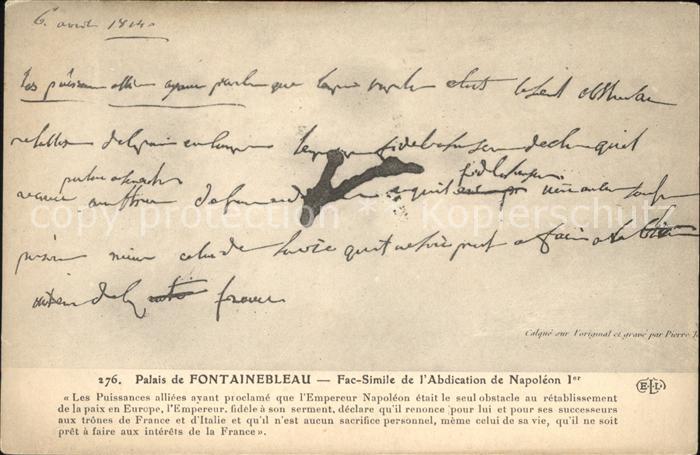 6 avril 1814
les puissances alliées ayant proclamé que l'empereur Napoléon était le seul obstacle au
rétablissement de la paix en Europe l'empereur fidèle à son serment déclare qu'il
renonce aux trônes de france et qu'il
personnel même celui de la vie qu'il ne soit prêt à faire à
de la france
copy protection * Kopierschutz
Calqué sur l'original et gravé par Pierre
276. Palais de FONTAINEBLEAU — Fac-Simile de l'Abdication de Napoléon Ier
ELD
« Les Puissances alliées ayant proclamé que l'Empereur Napoléon était le seul obstacle au rétablissement
de la paix en Europe, l'Empereur, fidèle à son serment, déclare qu'il renonce pour lui et pour ses successeurs
aux trônes de France et d'Italie et qu'il n'est aucun sacrifice personnel, même celui de sa vie, qu'il ne soit
prêt à faire aux intérêts de la France ».